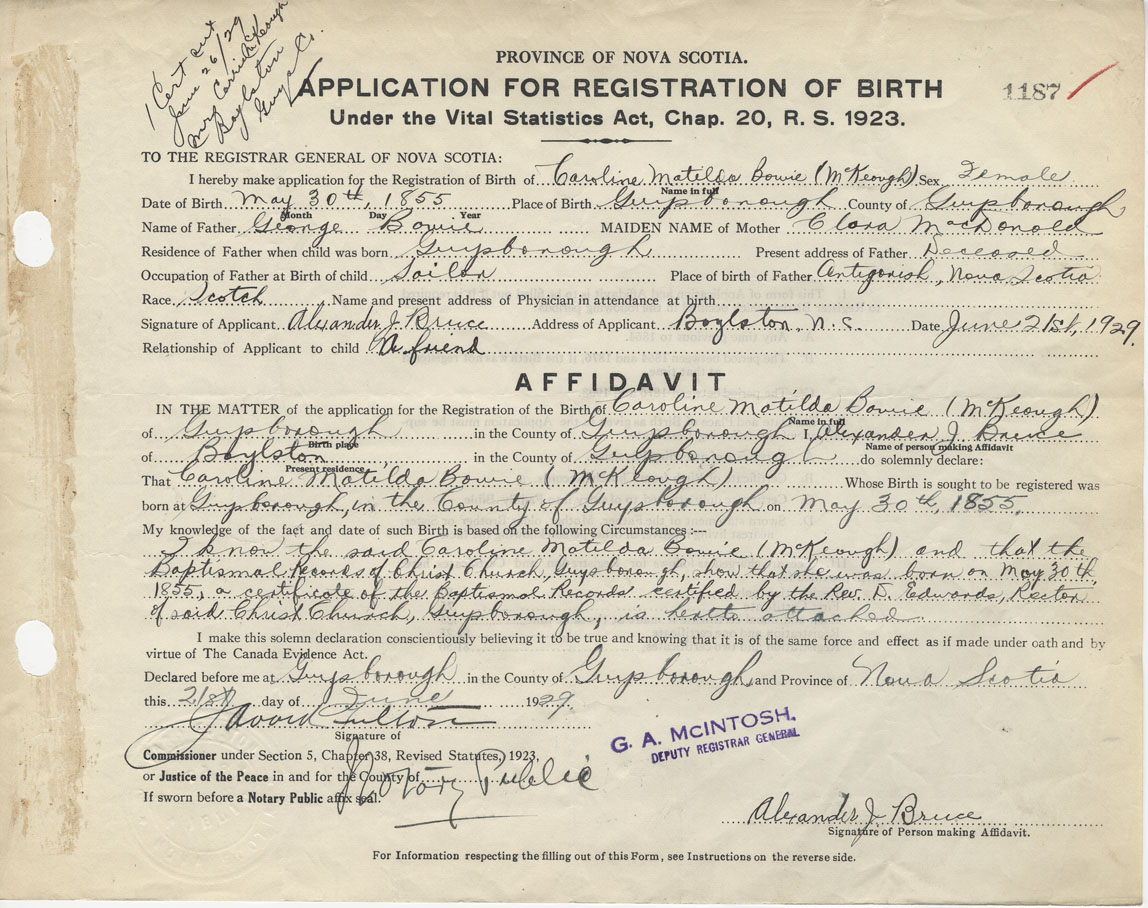 1 Cert out
June 26/29
Mrs Carrie McKeough
Boylston
Guys Co.
PROVINCE OF NOVA SCOTIA.
APPLICATION FOR REGISTRATION OF BIRTH
1187
Under the Vital Statistics Act, Chap. 20, R. S. 1923.
TO THE REGISTRAR GENERAL OF NOVA SCOTIA:
I hereby make application for the Registration of Birth of Caroline Matilda Bowie (McKeough) Sex Female
Name in full
Date of Birth May 30th, 1855 Place of Birth Guysborough County of Guysborough
Month Day Year
Name of Father George Bowie MAIDEN NAME of Mother Clara MacDonald
Residence of Father when child was born Guysborough Present address of Father Deceased
Occupation of Father at Birth of child Sailor Place of birth of Father Antigonish, Nova Scotia
Race. Scotch Name and present address of Physician in attendance at birth
Signature of Applicant Alexander J. Bruce Address of Applicant Boylston, N.S. Date June 21st, 1929.
Relationship of Applicant to child A friend
AFFIDAVIT
IN THE MATTER of the application for the Registration of the Birth of Caroline Matilda Bowie (McKeough)
Name in full
of Guysborough in the County of Guysborough I, Alexander J. Bruce
Birth place Name of person making Affidavit
of Boylston in the County of Guysborough do solemnly declare:
Present residence
That Caroline Matilda Bowie (McKeough) Whose Birth is sought to be registered was
born at Guysborough, in the County of Guysborough on May 30th, 1855.
My knowledge of the fact and date of such Birth is based on the following Circumstances :---
I know the said Caroline Matilda Bowie (McKeough) and that the
Baptismal Records of Christ Church, Guysborough, show that she was born on May 30th,
1855, a certificate of the Baptismal Records certified by the Rev. D. Edwards, Rector
of said Christ Church, Guysborough, is hereto attached
I make this solemn declaration conscientiously believing it to be true and knowing that it is of the same force and effect as if made under oath and by
virtue of The Canada Evidence Act.
Declared before me at Guysborough in the County of Guysborough and Province of Nova Scotia
this 21st day of June 1929.
Signature of
G. A. McINTOSH.
DEPUTY REGISTRAR GENERAL
Commissioner under Section 5, Chapter 38, Revised Statutes, 1923,
or Justice of the Peace in and for the County of
Notary Public
If sworn before a Notary Public affix seal.
Alexander J. Bruce
Signature of Person making Affidavit.
For Information respecting the filling out of this Form, see Instructions on the reverse side.